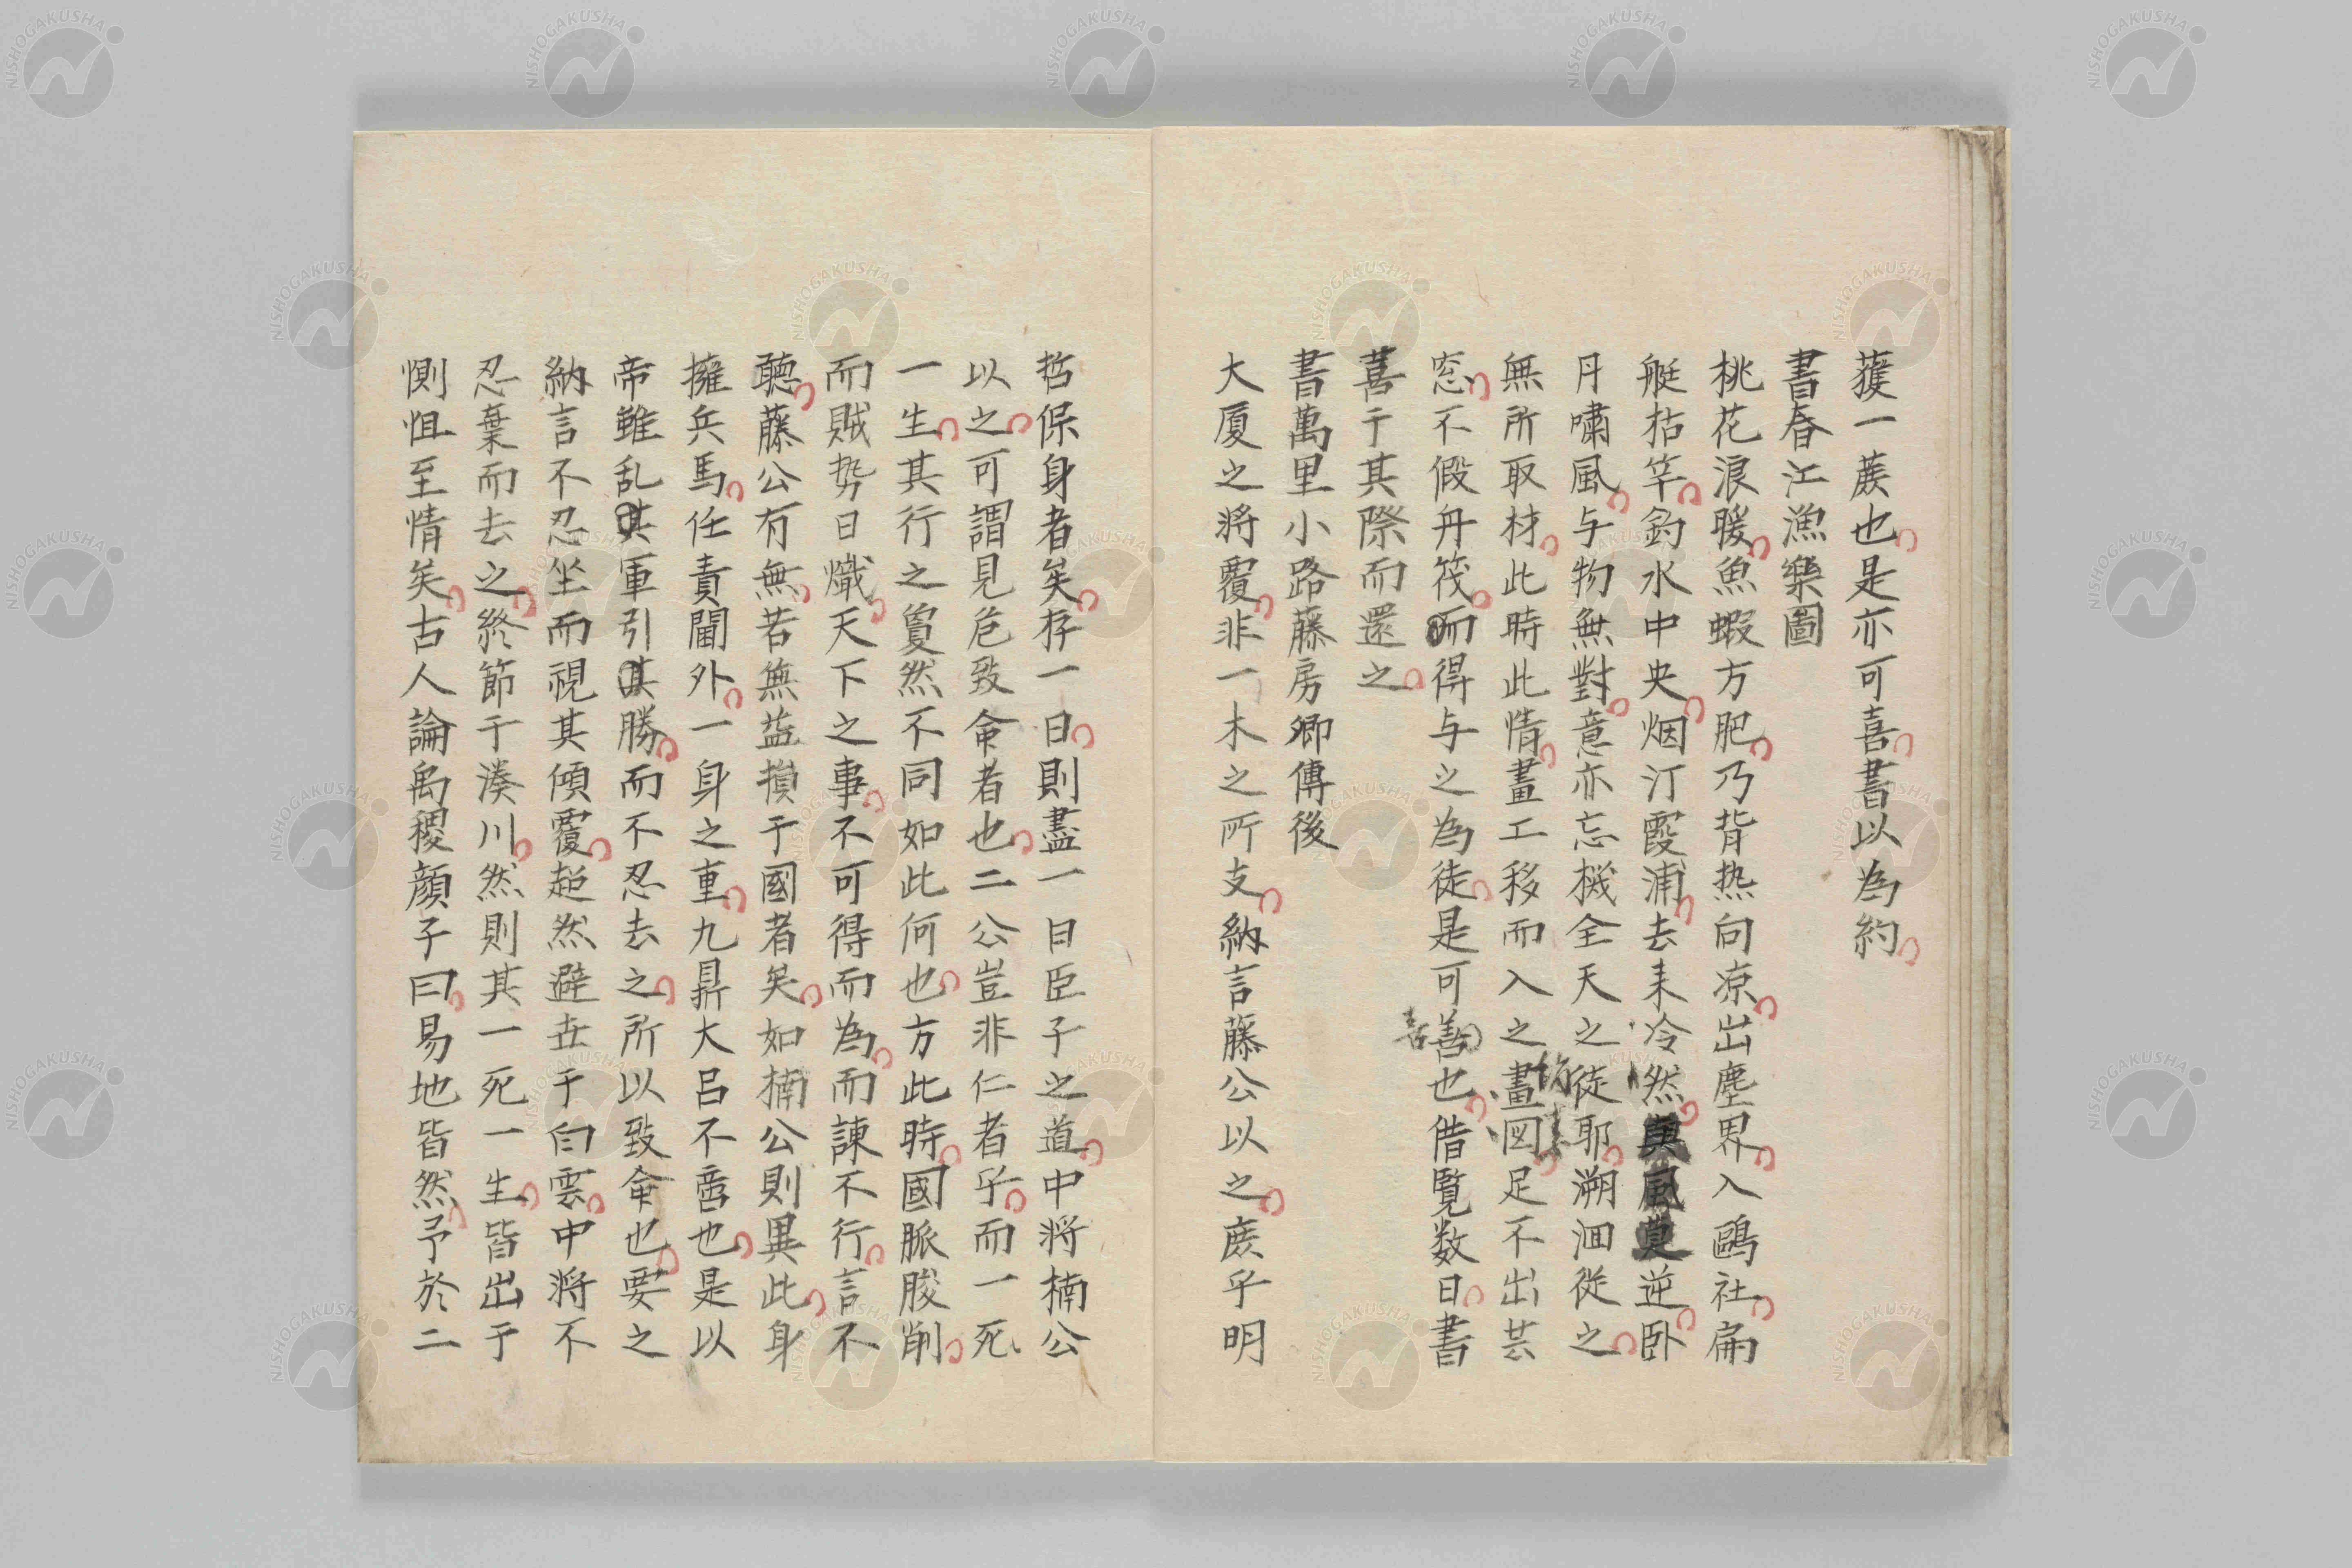 蒦一蕨也是亦可喜書以為約
書春江漁樂圖
桃花浪暖魚蝦方肥乃背热向凉出塵界入鷗社扁
艇枯竿釣水中央烟汀霞浦去来冷然與風莫逆卧
月嘯風与物無對意亦忘機全天之徒耶溯洄従之
無所取材此時此情畫工移而入之畫図足不出芸
窓不假舟筏而得与之為徒是可善也借覧数日書
喜
喜于其際而還之
書萬里小路藤房卿傳後
大厦之将覆非一木之所支納言藤公以之庻乎明
哲保身者矣存一日則盡一日臣子之道中将楠公
以之可謂見危致命者也二公豈非仁者乎而一死
一生其行之敻然不同如此何也方此時國脈朘削
而賊势日熾天下之事不可得而為而諌不行言不
聴藤公有無若無益損于國者矣如楠公則異此身
擁兵馬任責閫外一身之重九鼎大呂不啻也是以
帝雖乱其軍引其勝而不忍去之所以致命也要之
納言不忍坐而視其傾覆超然避世于白雲中将不
忍棄而去之終節于湊川然則其一死一生皆出于
惻怛至情矣古人論禹稷顔子曰易地皆然予於二
NISHOGAKUSHA